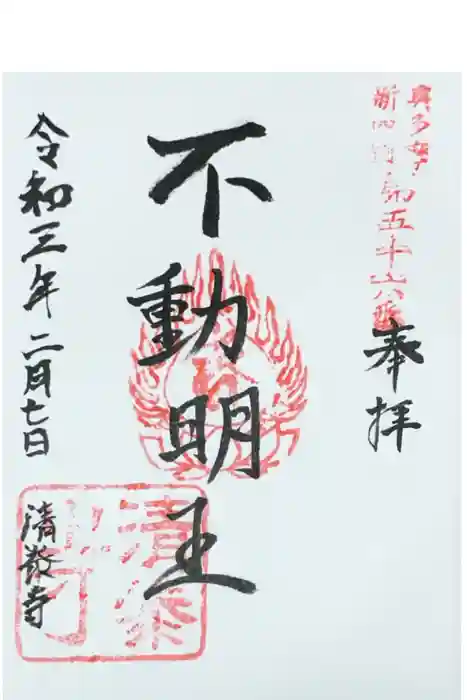 奥多摩
新四国第五十六番
奉拝
不動明王
令和三年二月七日